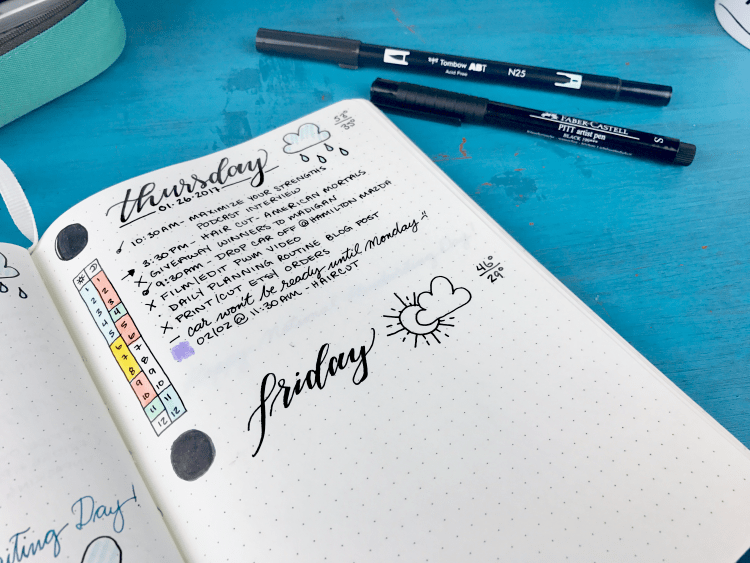 Tombow ABT
Acid Free
N25
FABER-CASTELL
PITT artist pen
BLACK 199**
S
thursday
01.26.2017
58°
35°
10:30AM - MAXIMIZE YOUR STRENGTHS
PODCAST INTERVIEW
3:30PM - HAIR CUT - AMERICAN MORTALS
GIVEAWAY WINNERS TO MADIGAN
9:30AM - DROP CAR OFF @ HAMILTON MAZDA
FILM/EDIT PWM VIDEO
DAILY PLANNING ROUTINE BLOG POST
PRINT/CUT ETSY ORDERS
- car won't be ready until Monday
02/02 @ 11:30AM - HAIRCUT
1 1
2 2
3 3
4 4
5 5
6 6
7 7
8 8
9 9
10 10
11 11
12 12
friday
46°
29°
Day!